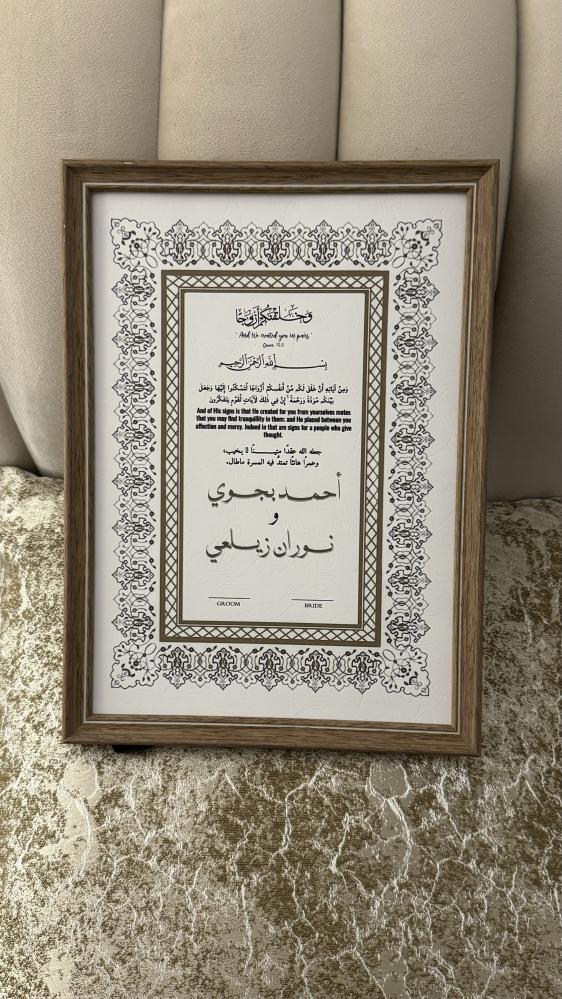 وَخَلَقْنَاكُمْ أَزْوَاجًا
"And We created you in pairs"
Quran 78:8
بِسْمِ اللَّهِ الرَّحْمَٰنِ الرَّحِيمِ
وَمِنْ آيَاتِهِ أَنْ خَلَقَ لَكُم مِّنْ أَنفُسِكُمْ أَزْوَاجًا لِّتَسْكُنُوا إِلَيْهَا وَجَعَلَ
بَيْنَكُم مَّوَدَّةً وَرَحْمَةً ۚ إِنَّ فِي ذَٰلِكَ لَآيَاتٍ لِّقَوْمٍ يَتَفَكَّرُونَ
And of His signs is that He created for you from yourselves mates
that you may find tranquillity in them; and He placed between you
affection and mercy. Indeed in that are signs for a people who give
thought.
جعله الله عقدًا متيـــنًا لا يخيب،
وعمرًا هانئًا تمتدّ فيه المسرة ماطال.
أحمد بجوي
و
نوران زيلعي
GROOM
BRIDE